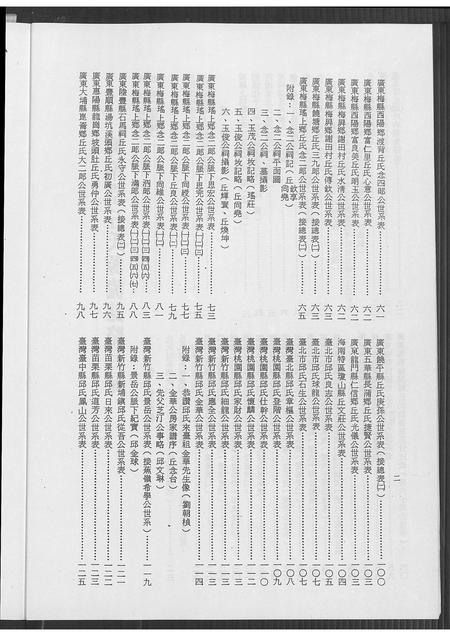 二
廣東梅縣西陽鄉丘氏念四郎公世系表……六一
廣東梅縣西陽富仁里丘氏心意公世系表……六二
廣東梅縣西陽富良美丘氏朗玉公世系表……六二
廣東梅縣梅屏鄉謝田村丘氏水清公世系表……六二
廣東梅縣梅屏鄉謝田村丘氏傳欽公世系表……六二
廣東梅縣饒塘鄉丘氏三九郎公世系表(接總表㈡)……六二
廣東梅縣瑤上鄉丘氏念二郎公世系表(接總表㈡)……六五
附錄:一、念二公祠記(丘尚堯)
二、念二公祠平面圖
三、念二公祠、墓攝影
四、玉茂公祠牧記略(瑤莊)
五、玉俊公祠牧記略(丘尚堯)
六、玉俊公祠攝影(丘煇寰、丘煥坤)
廣東梅縣瑤上鄉念二郎公脈下思宏公世系表……七三
廣東梅縣瑤上鄉念二郎公脈下思先公世系表㈠㈡……七五
廣東梅縣瑤上鄉念二郎公脈下尚絞公世系表㈠㈡……七七
廣東梅縣瑤上鄉念二郎公脈下丘良公世系表㈠㈡……七九
廣東梅縣瑤上鄉念二郎公脈下尚緣公世系表㈠㈡……八一
廣東梅縣瑤上鄉念二郎公脈下西郎公世系表㈠㈡㈢㈣㈤㈥……八三
廣東梅縣瑤上鄉念二郎公脈下滿郎公世系表㈠㈡㈢㈣㈤㈥㈦……八八
廣東陸豐縣石馬祠丘氏永守公世系表(接總表㈡)……九五
廣東豐順縣湯坑溪頭鄉丘氏初廣公世系表……九六
廣東惠陽縣龍崗鄉坡頭肚丘氏勇仲公世系表……九七
廣東大埔縣崑崙鄉丘氏大二郎公世系表……九八
廣東饒平縣丘氏廣孫公世系表(接總表㈡)……一〇〇
廣東五華縣長蒲鄉丘氏捷賢公世系表……一〇二
廣東龍門縣仁信鄉丘氏光儀公世系表……一〇三
海南特區瓊山縣丘文莊公世系表……一〇四
臺北市邱氏良志公世系表……一〇五
臺北市邱氏球龍公世系表……一〇七
臺北市邱氏石生公世系表……一〇七
臺灣臺北縣邱氏章樞公世系表……一〇八
臺灣桃園縣邱氏登階公世系表……一〇九
臺灣桃園縣邱氏仕幹公世系表……一一〇
臺灣桃園縣邱氏懷麟公世系表……一一二
臺灣桃園縣邱氏家財公世系表……一一二
臺灣新竹縣邱氏細龍公世系表……一一三
臺灣新竹縣邱氏應全公世系表……一一三
臺灣新竹縣邱氏金華公世系表……一一四
附錄:一、恭讚邱氏來臺祖金華先生像(劉朝楨)
二、金華公房家譜序(丘念台)
三、先父芝汀公事略(邱文琳)
臺灣新竹縣邱氏景岳公世系表(接蕉嶺希學公世系)……一一九
附錄:景岳公脈下紀實(邱金球)
臺灣新竹縣新埔鎮邱氏從吾公世系表……一二一
臺灣苗栗縣邱氏日來公世系表……一二二
臺灣苗栗縣邱氏道芳公世系表……一二三
臺灣臺中縣邱氏鳳山公世系表……一二五